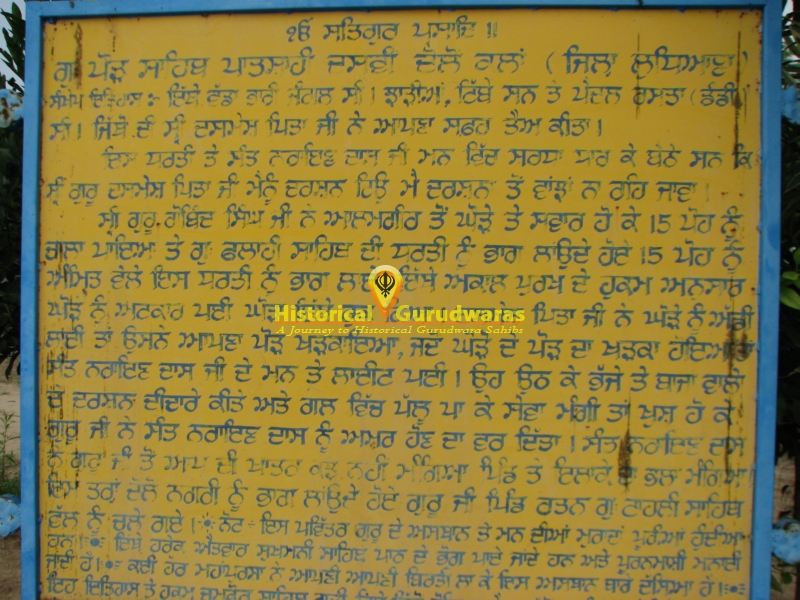 ੴ ਸਤਿਗੁਰ ਪ੍ਰਸਾਦਿ ॥
ਗੁ ਪੌੜ ਸਾਹਿਬ ਪਾਤਸ਼ਾਹੀ ਦਸਵੀਂ ਦੋਲੋਂ ਕਲਾਂ ( ਜਿਲ੍ਹਾ ਲੁਧਿਆਣਾ )
ਸੰਖੇਪ ਇਤਿਹਾਸ :- ਇੱਥੇ ਵੱਡਾ ਭਾਰੀ ਜੰਗਲ ਸੀ। ਝਾੜੀਆਂ, ਟਿੱਬੇ ਸਨ ਤੇ ਪੈਦਲ ਰਸਤਾ (ਡੰਡੀ)
ਸੀ। ਜਿੱਥੋਂ ਦੀ ਸ੍ਰੀ ਦਸਮੇਸ ਪਿਤਾ ਜੀ ਨੇ ਆਪਣਾ ਸਫਰ ਤੈਅ ਕੀਤਾ।
ਇਸ ਧਰਤੀ ਤੇ ਸੰਤ ਨਰਾਇਣ ਦਾਸ ਜੀ ਮਨ ਵਿੱਚ ਸਰਧਾ ਧਾਰ ਕੇ ਬੈਠੇ ਸਨ ਕਿ
ਸ੍ਰੀ ਗੁਰੂ ਦਸਮੇਸ਼ ਪਿਤਾ ਜੀ ਮੈਨੂੰ ਦਰਸ਼ਨ ਦਿਓ ਮੈਂ ਦਰਸ਼ਨਾ ਤੋਂ ਵਾਂਝਾਂ ਨਾ ਰਹਿ ਜਾਵਾਂ।
ਸ੍ਰੀ ਗੁਰੂ ਗੋਬਿੰਦ ਸਿੰਘ ਜੀ ਨੇ ਆਲਮਗੀਰ ਤੋਂ ਘੋੜੇ ਤੇ ਸਵਾਰ ਹੋ ਕੇ 15 ਪੋਹ ਨੂੰ
ਚਾਲਾ ਪਾਇਆ ਤੇ ਗੁ ਫਲਾਹੀ ਸਾਹਿਬ ਦੀ ਧਰਤੀ ਨੂੰ ਭਾਗ ਲਾਉਂਦੇ ਹੋਏ 15 ਪੋਹ ਨੂੰ
ਅੰਮ੍ਰਿਤ ਵੇਲੇ ਇਸ ਧਰਤੀ ਨੂੰ ਭਾਗ ਇੱਥੇ ਅਕਾਲ ਪੁਰਖ ਦੇ ਹੁਕਮ ਅਨੁਸਾਰ
ਘੋੜੇ ਨੂੰ ਅਟਕਾਰ ਪਈ ਪਿਤਾ ਜੀ ਨੇ ਘੋੜੇ ਨੂੰ ਅੱਡੀ
ਲਾਈ ਤਾਂ ਉਸਨੇ ਆਪਣਾ ਪੌੜ ਖੜਕਾਇਆ, ਜਦ ਘੋੜੇ ਦੇ ਪੌੜ ਦਾ ਖੜਕਾ ਹੋਇਆ
ਸੰਤ ਨਰਾਇਣ ਦਾਸ ਜੀ ਦੇ ਮਨ ਤੇ ਲਾਈਟ ਪਈ। ਉਹ ਉਠ ਕੇ ਭੱਜੇ ਤੇ ਬਾਜਾ ਵਾਲੇ
ਦੇ ਦਰਸ਼ਨ ਦੀਦਾਰੇ ਕੀਤੇ ਅਤੇ ਗਲ ਵਿੱਚ ਪੱਲੂ ਪਾ ਕੇ ਸੇਵਾ ਮੰਗੀ ਤਾਂ ਖੁਸ਼ ਹੋ ਕੇ
ਗੁਰੂ ਜੀ ਨੇ ਸੰਤ ਨਰਾਇਣ ਦਾਸ ਨੂੰ ਅਮਰ ਹੋਣ ਦਾ ਵਰ ਦਿੱਤਾ। ਸੰਤ ਨਰਾਇਣ ਦਾਸ
ਨੇ ਗੁਰੂ ਜੀ ਤੋਂ ਆਪ ਦੀ ਖਾਤਰ ਕੁਝ ਨਹੀਂ ਮੰਗਿਆ ਪਿੰਡ ਤੇ ਇਲਾਕੇ ਦਾ ਭਲਾ ਮੰਗਿਆ।
ਇਸ ਤਰ੍ਹਾਂ ਦੋਲੋਂ ਨਗਰੀ ਨੂੰ ਭਾਗ ਲਾਉਂਦੇ ਹੋਏ ਗੁਰੂ ਜੀ ਪਿੰਡ ਰਤਨ ਗੁ ਟਾਹਲੀ ਸਾਹਿਬ
ਵੱਲ ਨੂੰ ਚਲੇ ਗਏ। ਨੋਟ - ਇਸ ਪਵਿੱਤਰ ਗੁਰੂ ਦੇ ਅਸਥਾਨ ਤੇ ਮਨ ਦੀਆਂ ਮੁਰਾਦਾਂ ਪੂਰੀਆਂ ਹੁੰਦੀਆਂ
ਹਨ। ਇੱਥੇ ਹਰੇਕ ਐਤਵਾਰ ਸੁਖਮਨੀ ਸਾਹਿਬ ਪਾਠ ਦੇ ਭੋਗ ਪਾਏ ਜਾਂਦੇ ਹਨ ਅਤੇ ਪੂਰਨਮਾਸ਼ੀ ਮਨਾਈ
ਜਾਂਦੀ ਹੈ। ਕਈ ਹੋਰ ਮਹਾਂਪੁਰਸ਼ਾ ਨੇ ਆਪਣੀ ਆਪਣੀ ਬਿਰਤੀ ਲਾ ਕੇ ਇਸ ਅਸਥਾਨ ਬਾਰੇ ਦੱਸਿਆ ਹੈ।
ਇਹ ਇਤਿਹਾਸ ਤੇ ਹੁਕਮ
Historical Gurudwaras
A Journey to Historical Gurudwara Sahibs